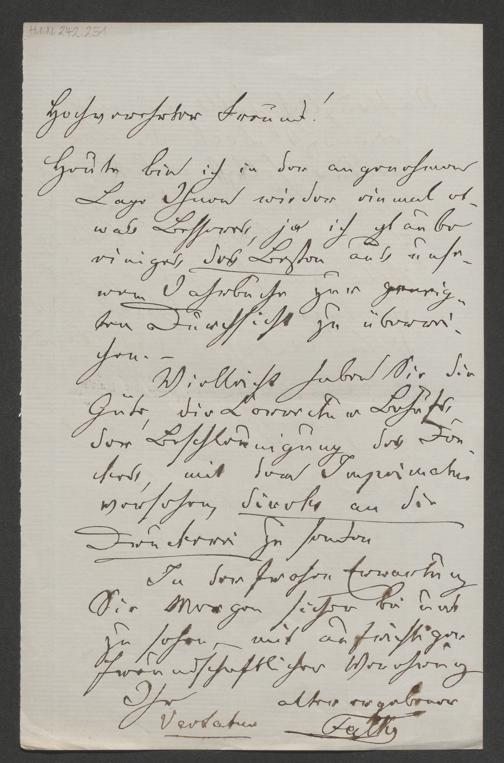 H.I.N. 242.251
Hochverehrter Freund!
Heute bin ich in der angenehmen
Lage Ihnen wieder einmal et-
was Besseres, ja ich glaube
einiges des Besten aus unse-
rem Jahrbuche zur geneig-
ten Durchsicht zu überrei-
chen. –
Vielleicht haben Sie die
Güte, die Correctur Behufs
der Beschleunigung des Dru-
ckes, mit dem Imprimatur
versehen, direkt an die
Druckerei zu senden
In der frohen Erwartung
Sie Morgen sicher bei uns
zu sehen, mit aufrichtiger
freundschaftlicher Verehrung
Ihr alter ergebener
Falke